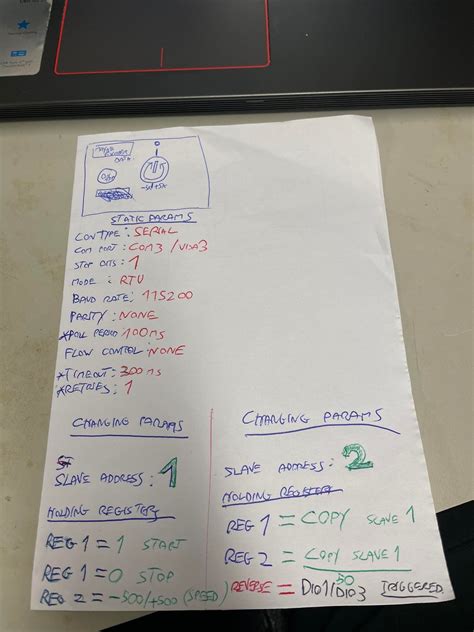 -50 +50
STATIC PARAMS
CON TYPE: SERIAL
COM PORT: COM3 / VISA3
STOP BITS: 1
MODE: RTU
BAUD RATE: 115200
PARITY: NONE
*POLL PERIOD 100ms
FLOW CONTROL: NONE
*TIMEOUT: 300ms
*RETRIES: 1
CHANGING PARAMS
SLAVE ADDRESS: 1
HOLDING REGISTERS
REG 1 = 1 START
REG 1 = 0 STOP
REG 2 = -500/+500 (SPEED)
CHANGING PARAMS
SLAVE ADDRESS: 2
HOLDING REGISTERS
REG 1 = COPY SLAVE 1
REG 2 = COPY SLAVE 1
50
REVERSE = DIO1/DIO3 TRIGGERED